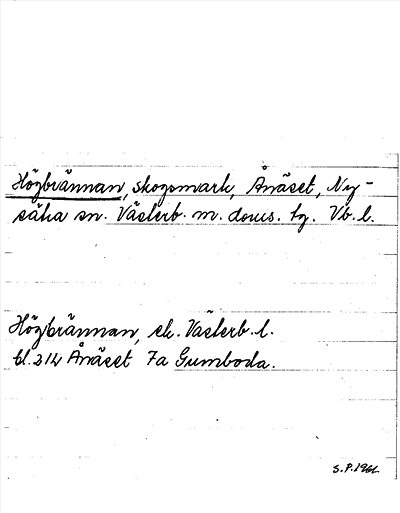 Högbrännan, skogsmark, Ånäset, Ny-
sätra sn. Västerb. m. doms. tg. Vb. l.
Högbrännan, ek. Västerb. l.
bl. 214 Ånäset 7a Gumboda.
S.P. 1961.